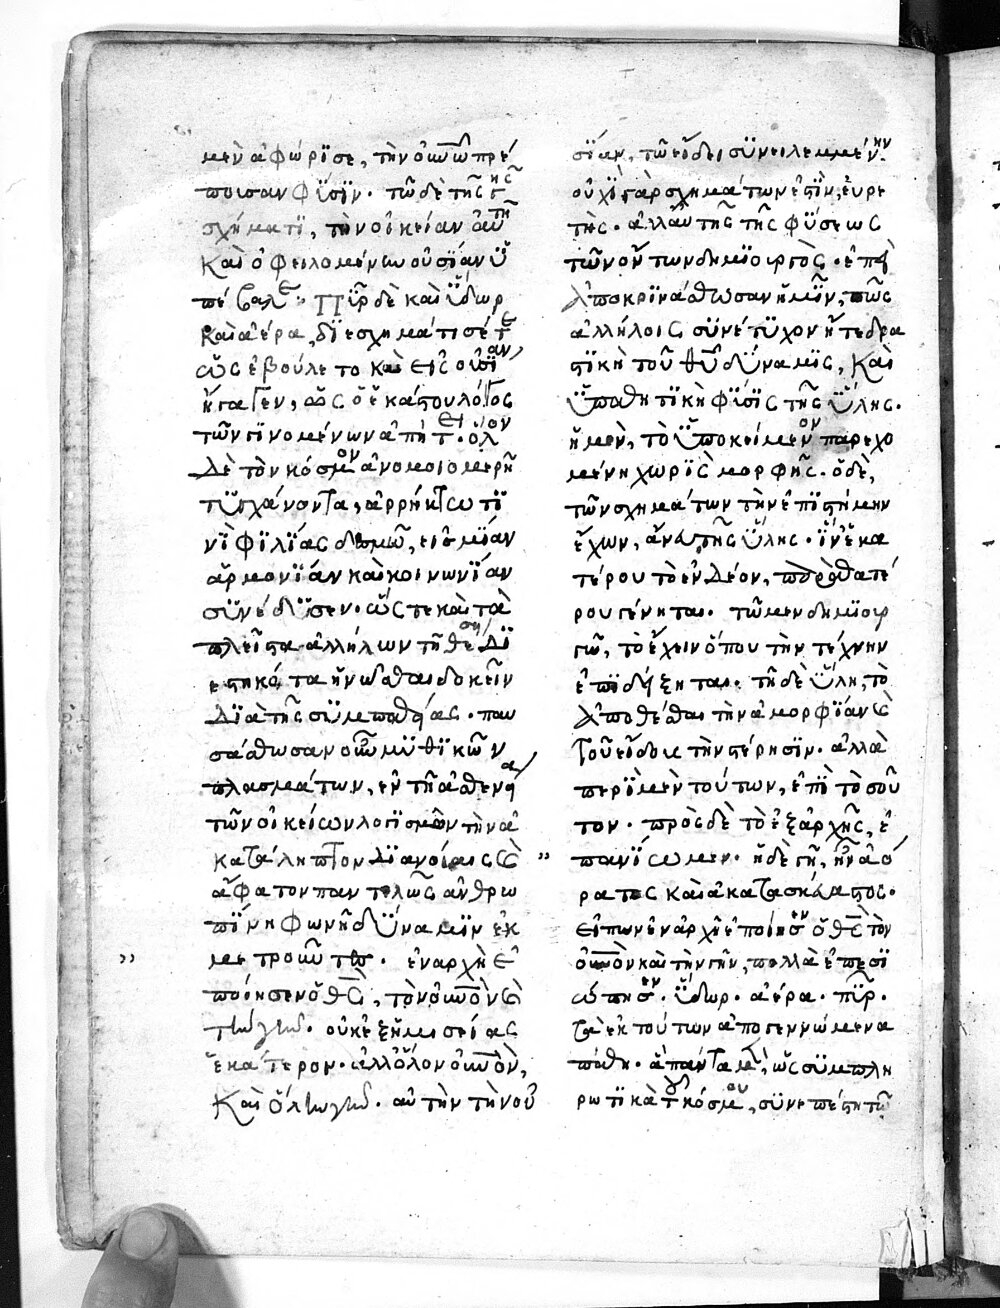 μὲν ἀφώρϊσε, τὴν οὐνῶ πρέ
πουσαν φΰσϊν· τῶ δὲ τῆς γῆς
σχήματϊ, τὴν οἰκείαν αὐτῆ
καὶ ὀφειλομένην οὐσίαν ϋ
πέβαλε· Πῦρ δὲ καὶ ὕδωρ
καὶ ἀέρα, δϊεσχημάτισέ τε
ὡς ἐβούλετο καὶ εἰς οὐσΐαν
ἤγαγεν, ὡς ὁ ἑκάστου λόγος
τῶν γϊνομένων ἀπήτει· ὅλον
δὲ τὸν κόσμον ἀνομοιομερῆ
τϋγχάνοντα, ἀρρήκτω τϊ
νὶ φϊλΐας δεσμῶ, εἰς μΐαν
ἁρμονΐαν καὶ κοινωνΐαν
σϋνέδϋσεν· ὥστε καὶ τὰ
πλεῖστα ἀλλήλων τῆ θέσει δϊ
εστηκότα ἡνῶσθαι δοκεῖν
δϊὰ τῆς σϋμπαθείας· παυ
σάσθωσαν οὖν μϋθϊκῶν
πλασμάτων, ἐν τῆ ἀσθενεία
τῶν οἰκείων λογϊσμῶν τὴν ἀ
κατάληπτον δϊανοίαις καὶ
ἄφατον παντελῶς ἀνθρω
πΐνη φωνῆ δΰναμϊν ἐκ
μετροῦντες· ἐν ἀρχῆ ἐ
ποίησεν ὁ θς, τὸν οὐνὸν καὶ
τὴν γῆν· οὐκ ἐξ ἡμισείας
ἑκάτερον· ἀλλ' ὅλον οὐνὸν,
καὶ ὅλην γῆν· αὐτὴν τὴν οὐ
σΐαν, τῶ εἴδει σϋνειλεμμένην·
οὐχὶ γὰρ σχημάτων ἐστϊν, εὑρε
τὴς· ἀλλ' αὐτῆς τῆς φΰσεως
τῶν ὄντων δημϊουργός· ἐπεὶ
ἀποκρϊνάσθωσαν ἡμῖν, πῶς
ἀλλήλοις σϋνέτϋχον ἥ τε δρα
στϊκὴ τοῦ θυ δΰναμϊς, καὶ
ἡ παθητϊκὴ φΰσϊς τῆς ὕλης·
ἡ μὲν, τὸ ὑποκείμενον παρεχο
μένη χωρϊς μορφῆς· ὁ δὲ,
τῶν σχημάτων τὴν ἐπϊστήμην
ἔχων, ἄνευ τῆς ὕλης· ἵν' ἑκα
τέρου τὸ ἐνδέον, παρὰ θατέ
ρου γένηται· τῶ μεν δημϊουρ
γῶ, τὸ ἔχειν ὅπου τὴν τέχνην
ἐπϊδείξηται· τῆ δὲ ὕλη, τὸ
ἀποθέσθαι τὴν ἀμορφΐαν καὶ
τοῦ εἴδους τὴν στέρησϊν· ἀλλὰ
περϊ μὲν τούτων, ἐπϊ τοσοῦ
τον· πρὸς δὲ τὸ ἐξαρχῆς, ἐ
πανΐωμεν· ἡ δὲ γῆ, ἦν ἀό
ρατος καὶ ἀκατασκεύαστος·
εἰπων ἐν ἀρχῆ ἐποίησεν ὁ θς τὸν
οὐνὸν καὶ τὴν γῆν, πολλὰ ἐπεσϊ
ώπησεν· ὕδωρ· ἀέρα· πῦρ·
τὰ ἐκ τούτων ἀπογεννώμενα
πάθη· ἃ πάντα μὲν, ὡς σϋμπλη
ρωτϊκὰ τοῦ κόσμου, σϋνεπέστη τῶ